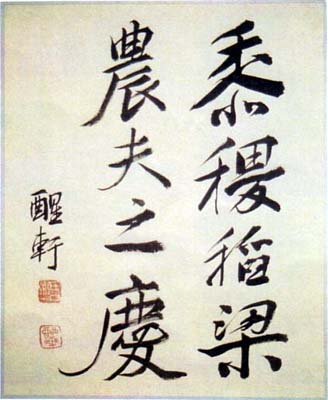 黍稷稻粱
農夫之慶
醒軒